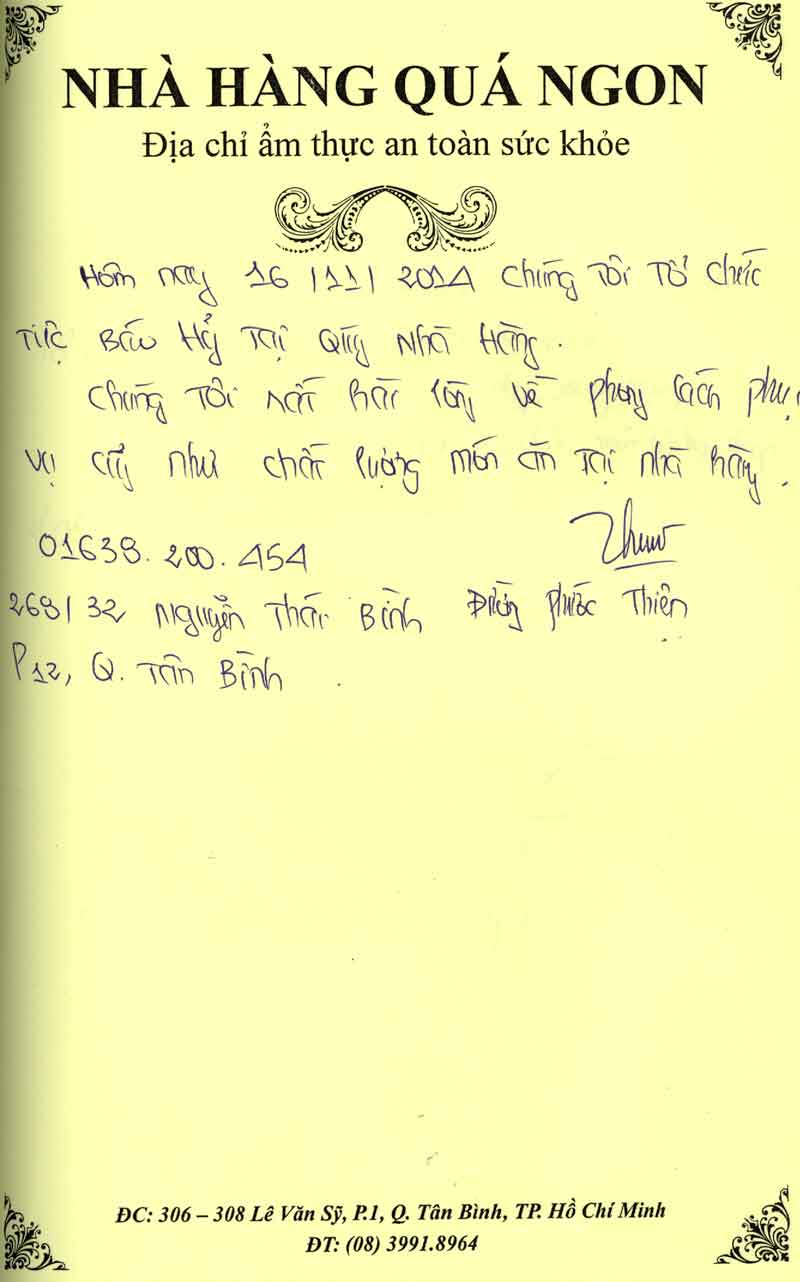 NHÀ HÀNG QUÁ NGON
Địa chỉ ẩm thực an toàn sức khỏe
Hôm nay 16/11/2014 chúng tôi tổ chức
tiệc Báo Hỷ Tại Quý Nhà Hàng.
chúng tôi rất hài lòng về phong cách phục
vụ cũng như chất lượng món ăn tại nhà hàng.
01638.200.454
268/32 Nguyễn Thái Bình Đường Phước Thiên
P12, Q. Tân Bình.
ĐC: 306 – 308 Lê Văn Sỹ, P.1, Q. Tân Bình, TP. Hồ Chí Minh
ĐT: (08) 3991.8964